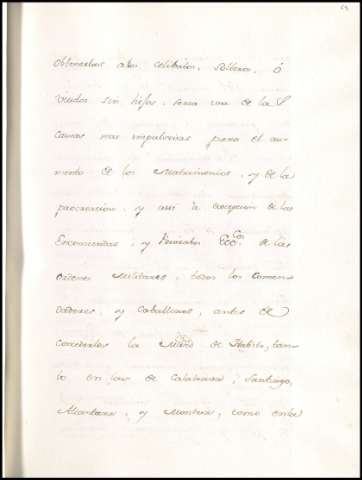 obtenerlos a los celibatos, solteros, ó
viudos sin hijos, seria una de las
causas mas impulsivas para el au-
mento de los Matrimonios, y de la
procreacion, y asi à excepcion de las
Encomiendas, y Ecc.cos de las
ordenes Militares, todos los Comen-
dadores, y Caballeros, antes de
concederles la de Habito, tan-
to en las de Calatrava, Santiago,
Alcantara, y Montesa, como en la